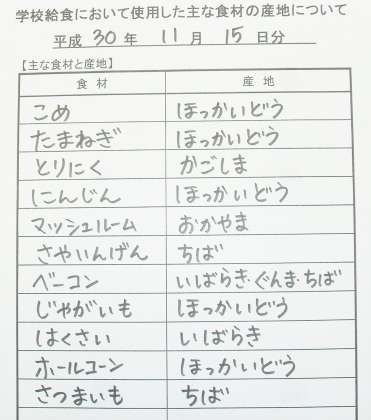 学校給食において使用した主な食材の産地について
平成 30 年 11 月 15 日分
【主な食材と産地】
食材 産地
こめ ほっかいどう
たまねぎ ほっかいどう
とりにく かごしま
にんじん ほっかいどう
マッシュルーム おかやま
さやいんげん ちば
ベーコン いばらき・ぐんま・ちば
じゃがいも ほっかいどう
はくさい いばらき
ホールコーン ほっかいどう
さつまいも ちば